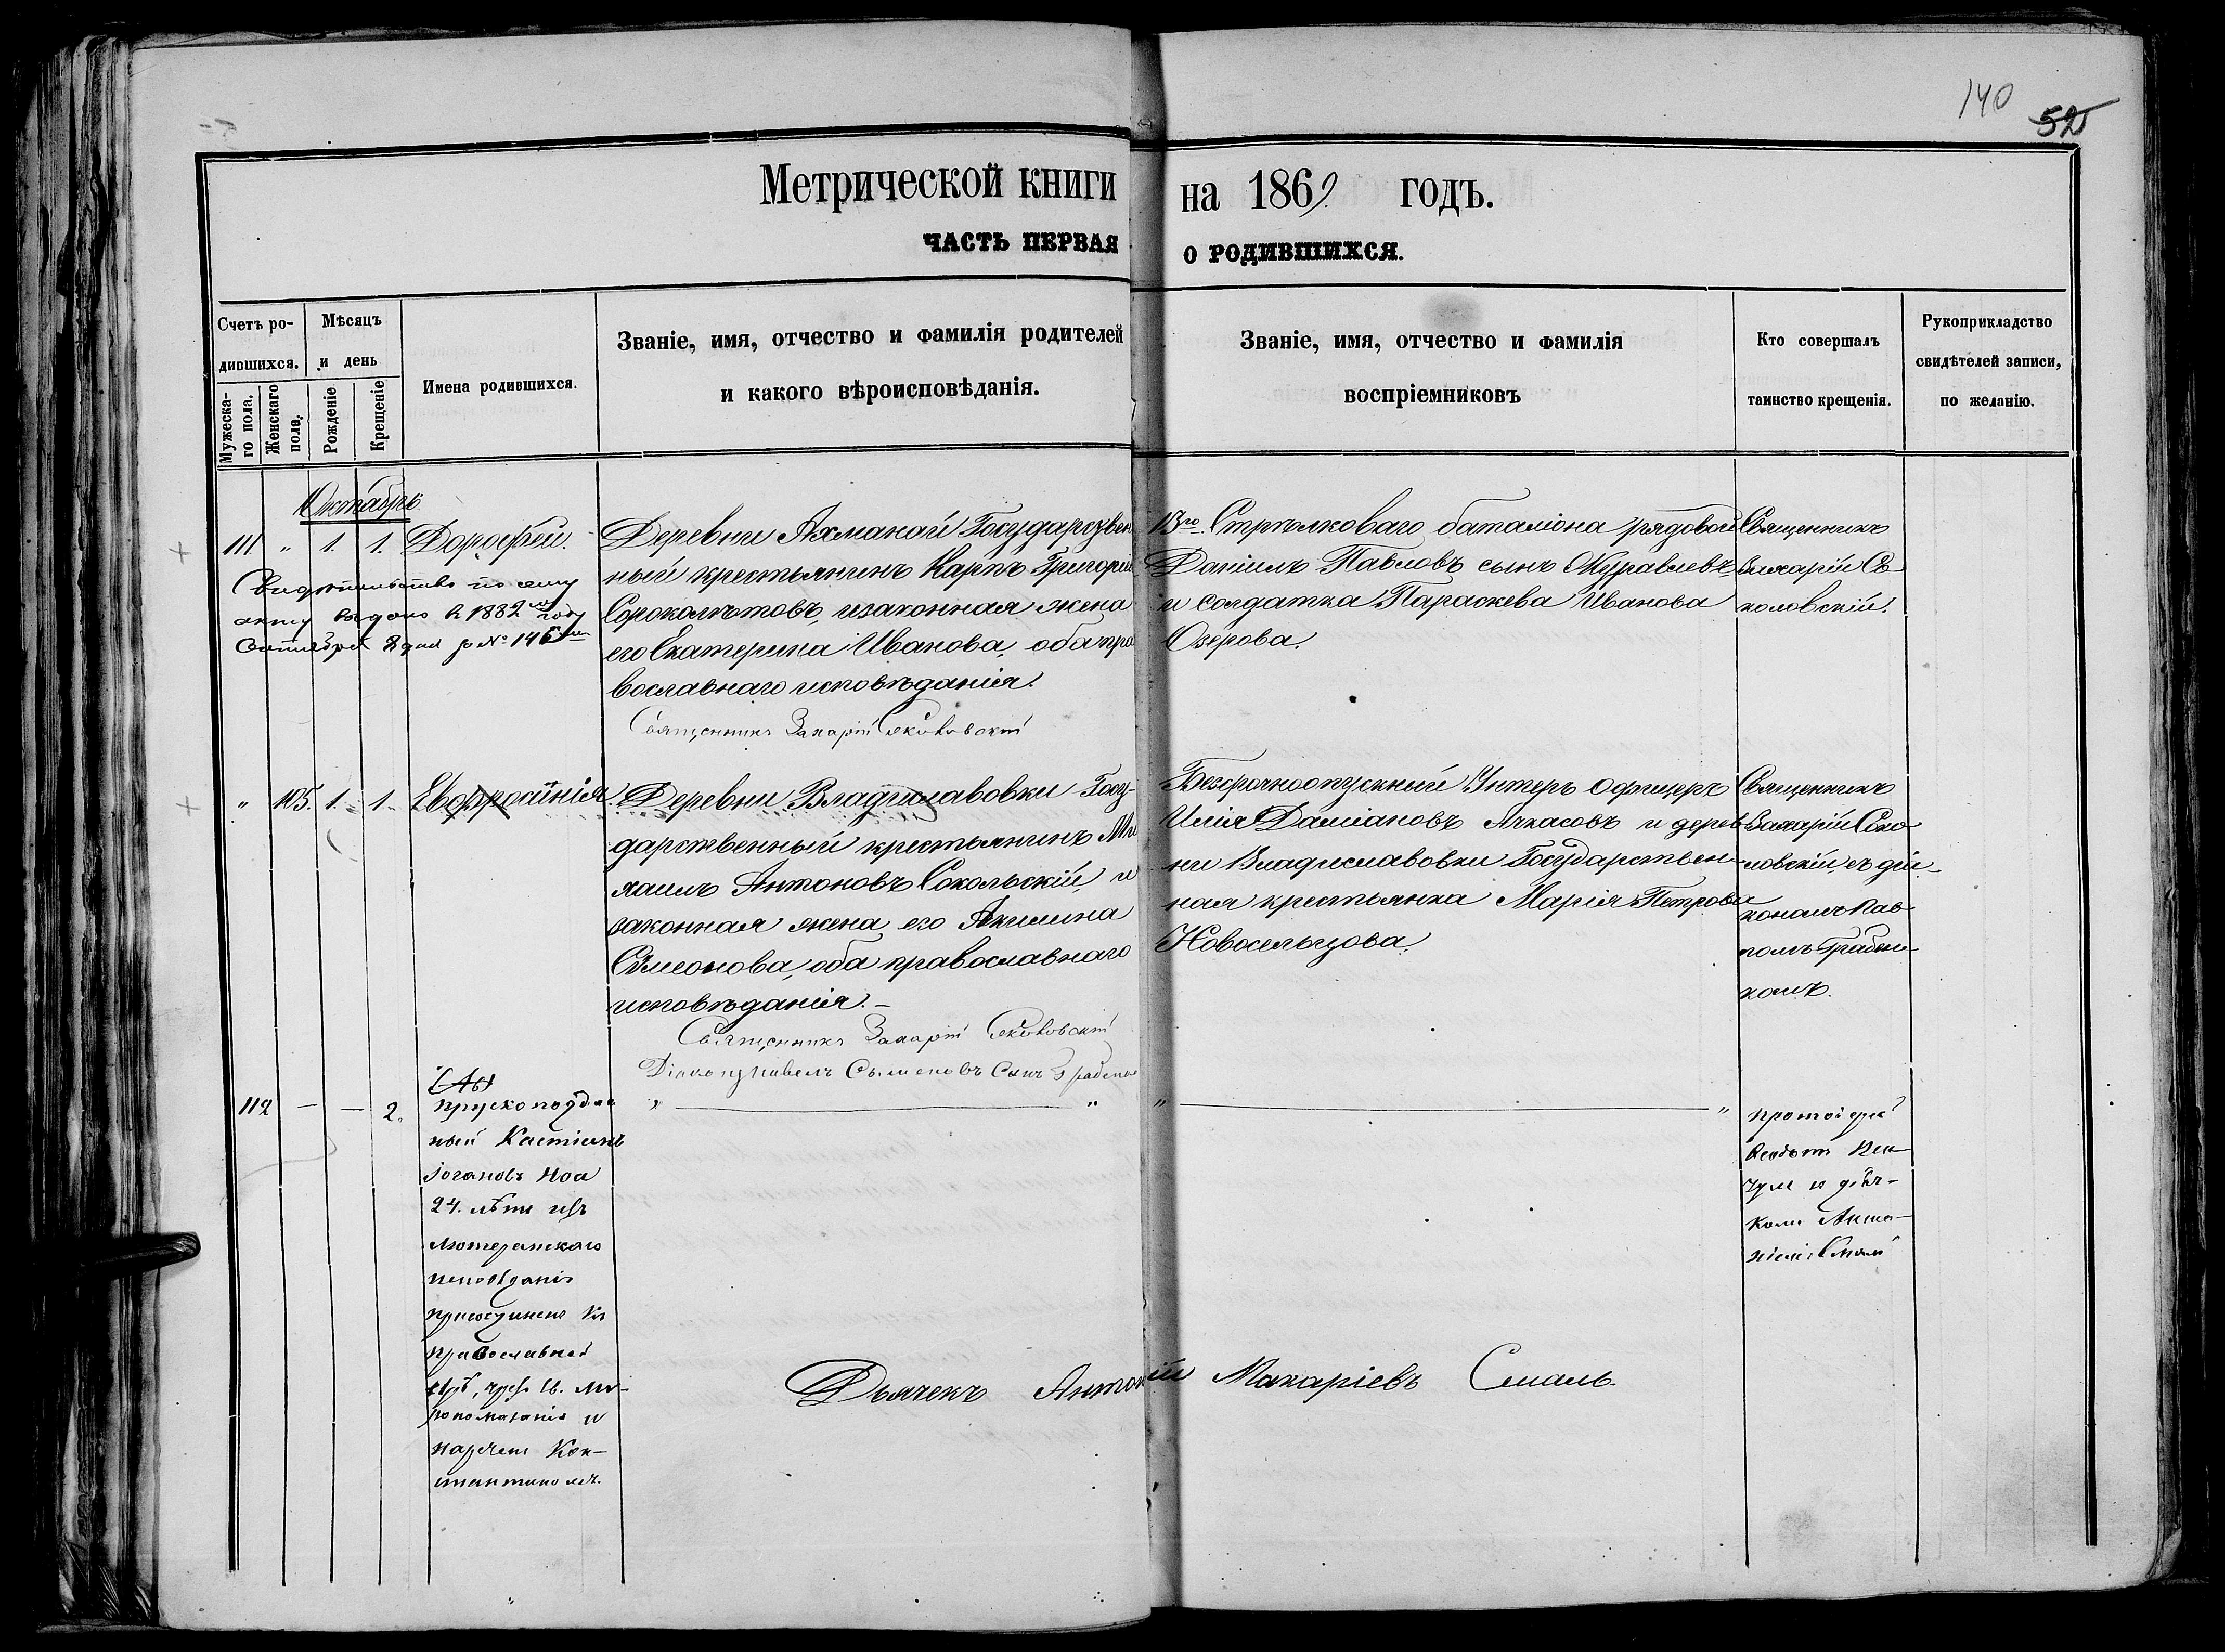 140
52
Метрической книги на 1869 годъ.
ЧАСТЬ ПЕРВАЯ О РОДИВШИХСЯ.
Счетъ ро-
дившихся.
Мужеска-
го пола.
Женскаго
пола.
Мѣсяцъ
и день
Рожденіе
Крещеніе
Имена родившихся.
Званіе, имя, отчество и фамилія родителей
и какого вѣроисповѣданія.
Званіе, имя, отчество и фамилія
воспріемниковъ
Кто совершалъ
таинство крещенія.
Рукоприкладство
свидѣтелей записи,
по желанію.
Октябрь
111 " 1. 1. Дорофей.
Свидѣтельство по сему
акту выдано в 1882 м году
Сентября 8 дня за № 146
Деревни Ахманай Государствен
ный крестьянинъ Карпъ Григорій
Сороколѣтовъ, изаконная жена
его Екатерина Иванова, оба пра
вославнаго исповѣданія.
Священникъ Захарій Соколовскій
13го Стрѣлковаго баталіона рядовой
Даніилъ Павловъ сынъ Журавлевъ
и солдатка Параскева Иванова
Озерова.
Священникъ
Захарій Со
коловскій.
" 105. 1. 1. Евфросинія.
Деревни Владиславовки Госу-
дарственный крестьянинъ Ми
хаилъ Антоновъ Сокольскій, и
законная жена его Акилина
Сѵмеонова, оба православнаго
исповѣданія.-
Священникъ Захарій Соколовскій
Діаконъ Павелъ Сѵмеоновъ Сынъ Грабенко
Безсрочноотпускный Унтеръ офицеръ
Илія Даміановъ Ачкасовъ и дерев
ни Владиславовки Государствен-
ная крестьянка Марія Петрова
Новосельцова.
Священникъ
Захарій Соко
ловскій, съ діа-
кономъ Пав
ломъ Грабен-
комъ.
112 — — 2.
прускоподдан
ный Кастіанъ
Іогановъ Ноа
24. лѣтъ изъ
Лютеранскаго
исповѣданія
присоединенъ къ
православной
чрезъ св. Мѵ-
ропомазаніе и
нареченъ Кон-
стантиномъ.
" — "
" — "
протоіерей
и дьяч-
комъ Анто
ніемъ Смаль
Дьячекъ Антоній Макаріевъ Смаль.